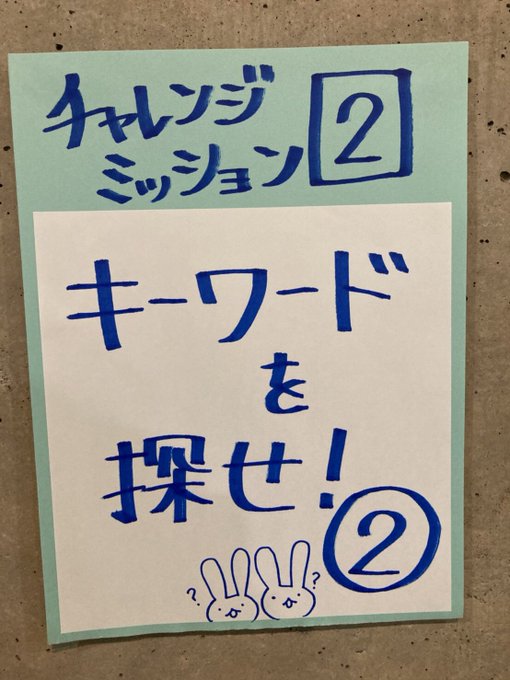 チャレンジ
ミッション 2
キーワード
を
探せ!
②
? ?